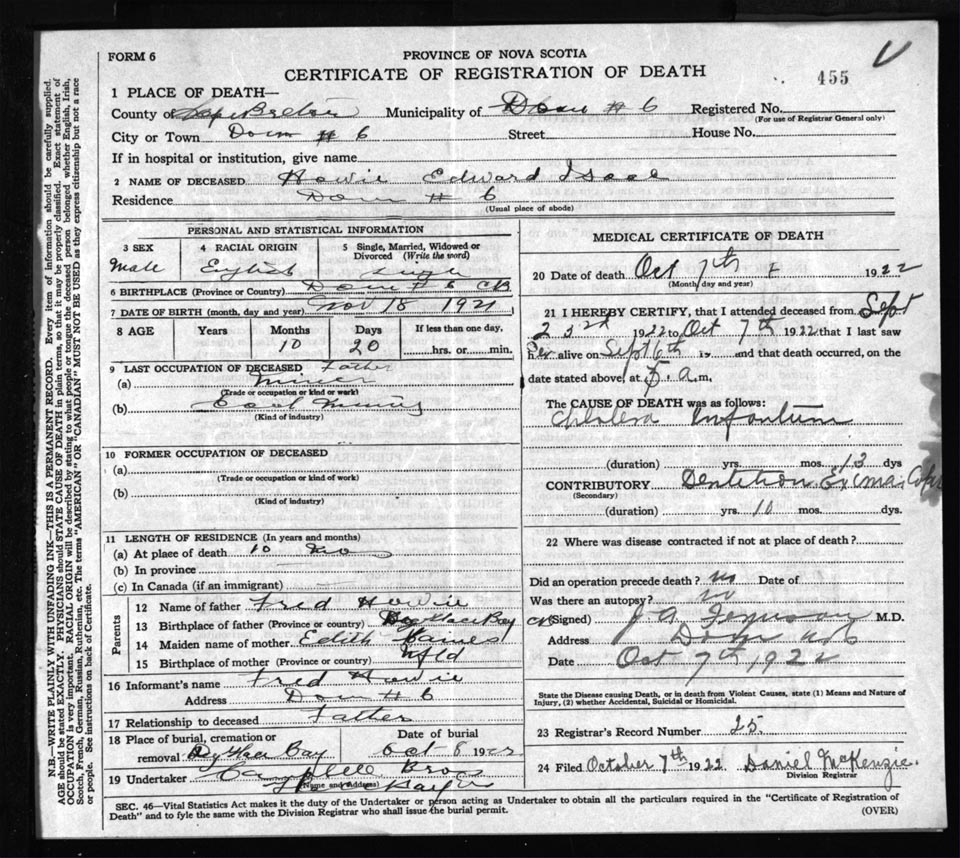 FORM 6
PROVINCE OF NOVA SCOTIA
CERTIFICATE OF REGISTRATION OF DEATH
455
1 PLACE OF DEATH—
County of Cape Breton Municipality of Dom # 6 Registered No.
(For use of Registrar General only)
City or Town Dom # 6 Street House No.
If in hospital or institution, give name
2 NAME OF DECEASED Howie Edward Isaac
Residence Dom # 6
(Usual place of abode)
PERSONAL AND STATISTICAL INFORMATION
3 SEX 4 RACIAL ORIGIN 5 Single, Married, Widowed or Divorced (Write the word)
Male English Single
6 BIRTHPLACE (Province or Country) Dom # 6 CB
7 DATE OF BIRTH (month, day and year) Nov 18 1921
8 AGE Years Months Days If less than one day,
10 20 hrs. or min.
9 LAST OCCUPATION OF DECEASED Father
(a) Miner
(Trade or occupation or kind or work)
(b) Coal Mining
(Kind of industry)
10 FORMER OCCUPATION OF DECEASED
(a)
(Trade or occupation or kind of work)
(b)
(Kind of industry)
11 LENGTH OF RESIDENCE (In years and months)
(a) At place of death 10 mos
(b) In province
(c) In Canada (if an immigrant)
Parents
12 Name of father Fred Howie
13 Birthplace of father (Province or country) Bay
14 Maiden name of mother Edith
15 Birthplace of mother (Province or country) Nfld
16 Informant's name Fred Howie
Address Dom # 6
17 Relationship to deceased Father
18 Place of burial, cremation or removal Bay Date of burial Oct 8 1922
19 Undertaker Bros
(Name and Address)
MEDICAL CERTIFICATE OF DEATH
20 Date of death Oct 7th 1922
(Month, day and year)
21 I HEREBY CERTIFY, that I attended deceased from Sept
23rd 1922 to Oct 7th 1922 that I last saw
h alive on Sept 6th 19 and that death occurred, on the
date stated above, at 5. a.m.
The CAUSE OF DEATH was as follows:
Cholera Infantum
(duration) yrs. mos. 13 dys
CONTRIBUTORY Dentition
(Secondary)
(duration) yrs. 10 mos. dys.
22 Where was disease contracted if not at place of death?
Did an operation precede death? no Date of
Was there an autopsy? no
(Signed) J. A. Ferguson M.D.
Address Dom No 6
Date Oct 7th, 1922
State the Disease causing Death, or in death from Violent Causes, state (1) Means and Nature of
Injury, (2) whether Accidental, Suicidal or Homicidal.
23 Registrar's Record Number 25.
24 Filed October 7th 1922 Daniel McKenzie
Division Registrar
SEC. 46—Vital Statistics Act makes it the duty of the Undertaker or person acting as Undertaker to obtain all the particulars required in the "Certificate of Registration of
Death" and to fyle the same with the Division Registrar who shall issue the burial permit.
(OVER)
N.B.—WRITE PLAINLY WITH UNFADING INK—THIS IS A PERMANENT RECORD. Every item of information should be carefully supplied.
AGE should be stated EXACTLY. PHYSICIANS should STATE CAUSE OF DEATH in plain terms, so that it may be properly classified. Exact statement of
OCCUPATION is very important. RACIAL ORIGIN will be described by stating to what people or tongue the deceased person belonged whether English, Irish,
Scotch, French, German, Russian, Ruthenian, etc. The terms "AMERICAN" OR "CANADIAN" MUST NOT BE USED as they express citizenship but not a race
or people. See instructions on back of Certificate.